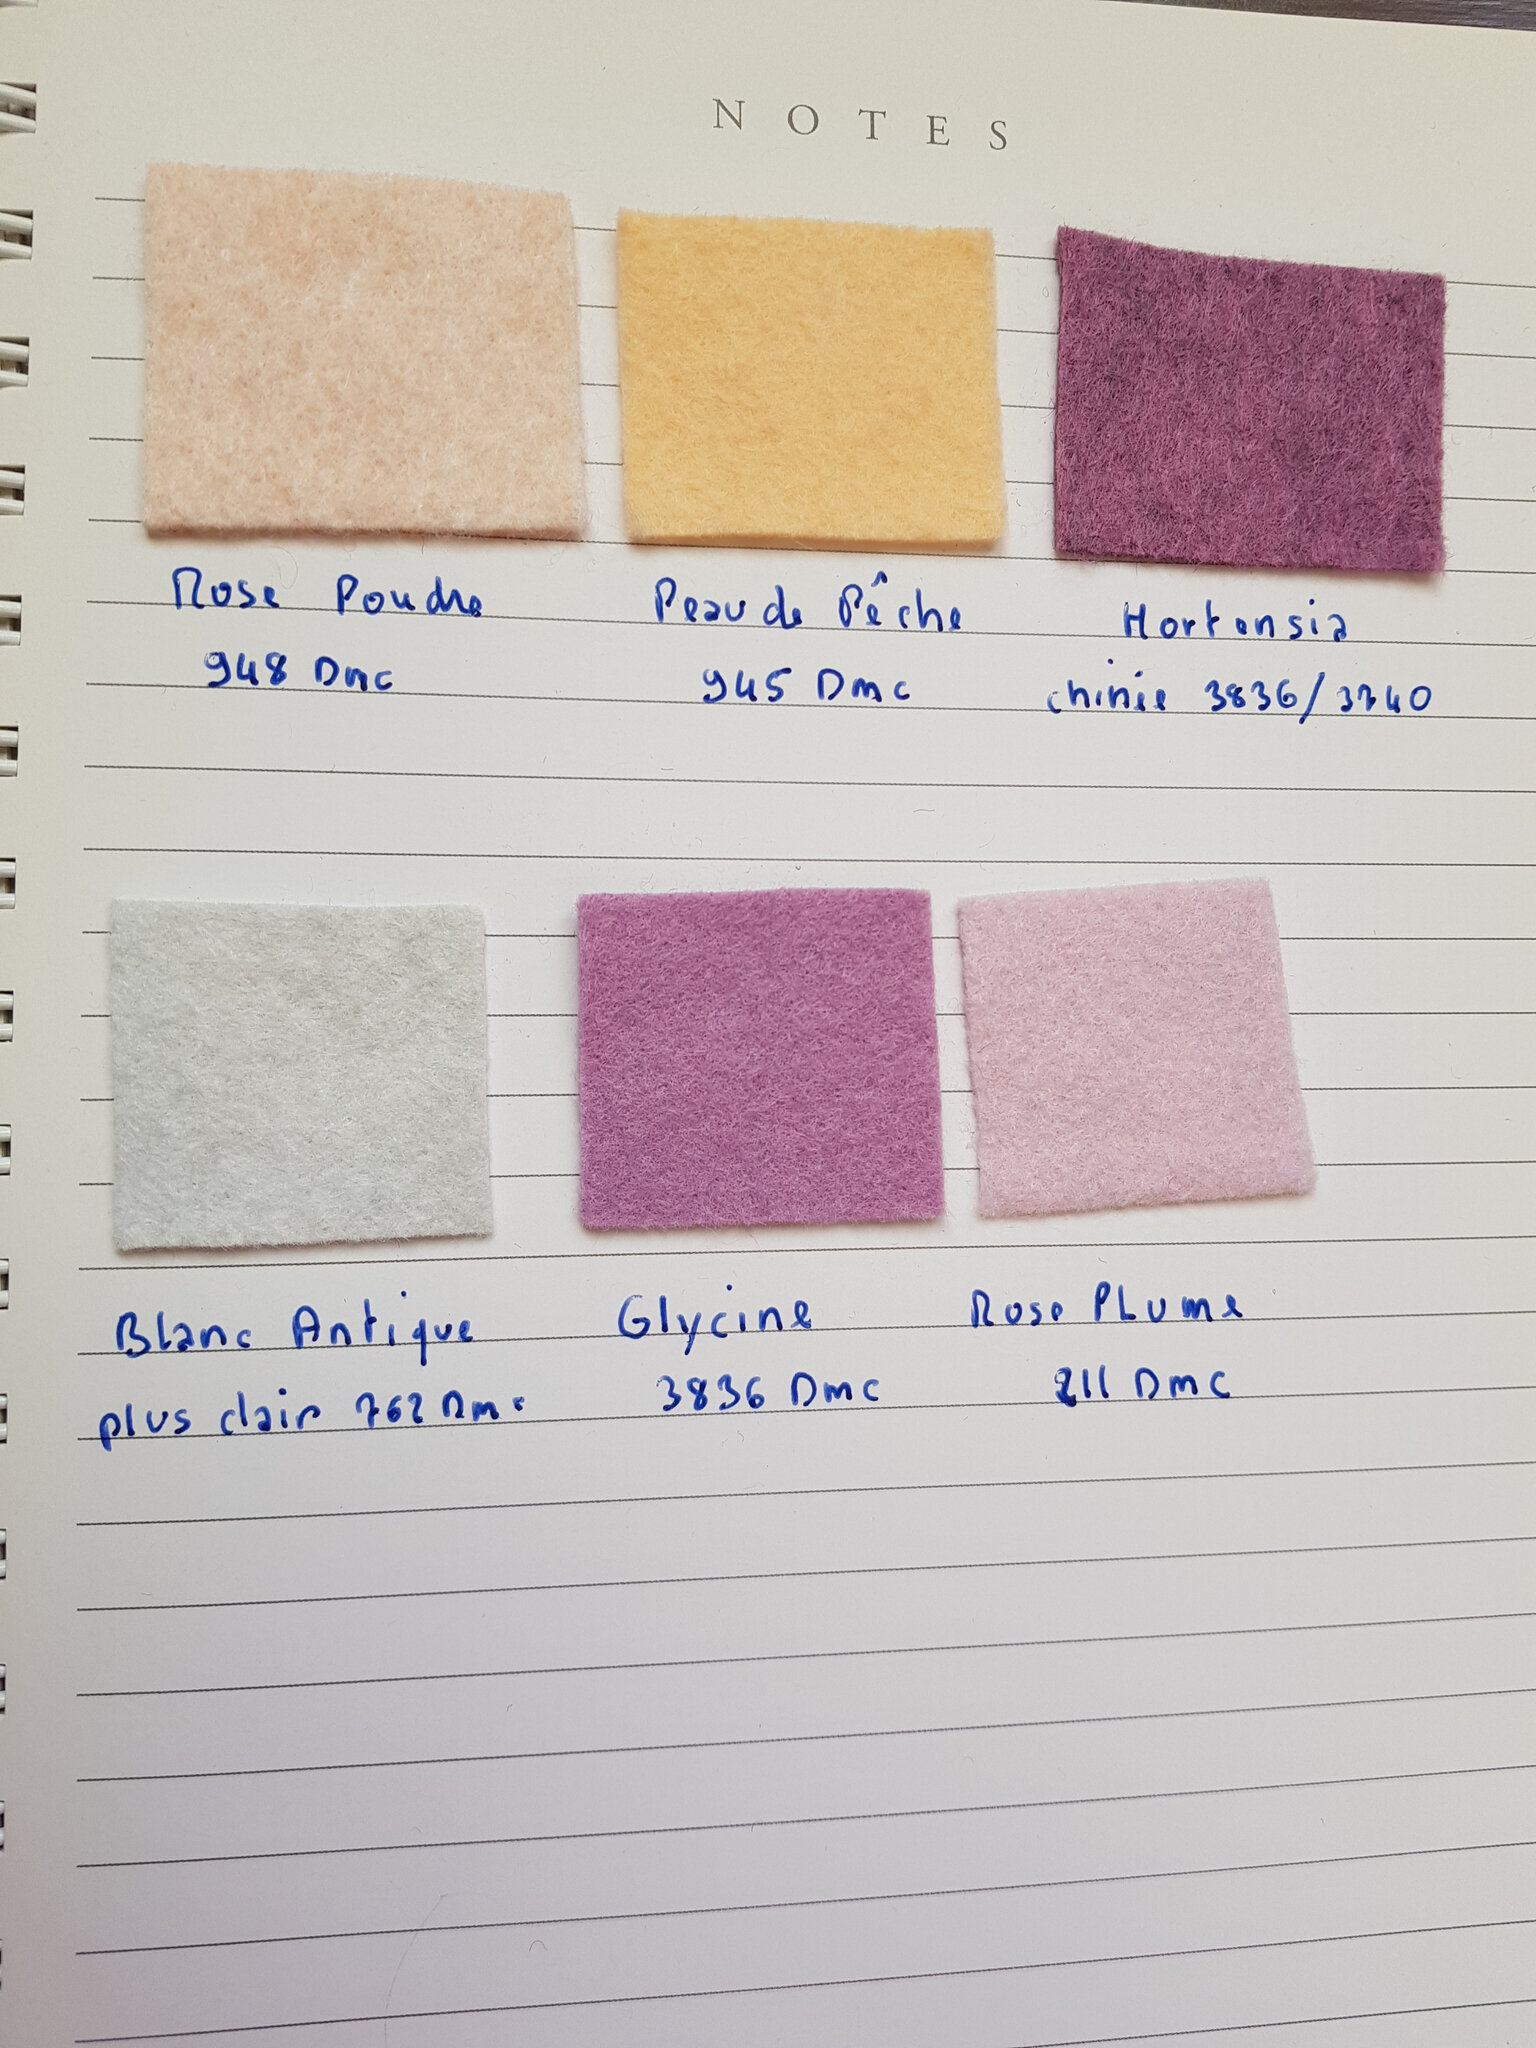 NOTES
Rose Poudre
948 Dmc
Peau de Pêche
945 Dmc
Hortensia
chinée 3836/3740
Blanc Antique
plus clair 762 Dmc
Glycine
3836 Dmc
Rose Plume
211 Dmc